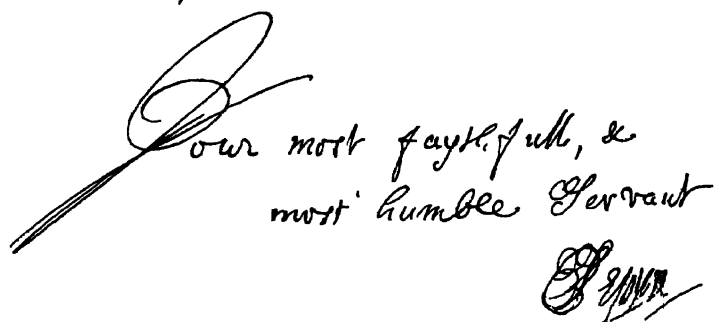 Your most faythfull, &
most humble Servant
SPepys